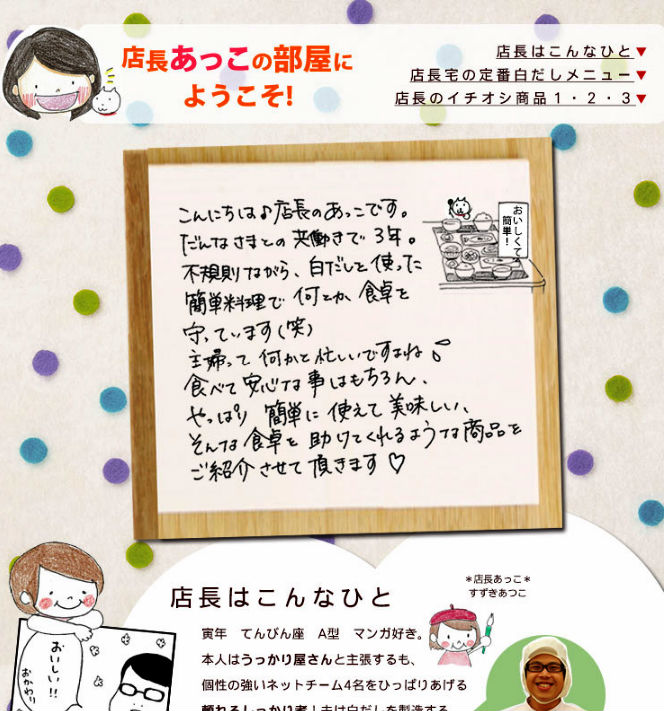 店長あっこの部屋に
ようこそ!
店長はこんなひと▼
店長宅の定番白だしメニュー▼
店長のイチオシ商品1・2・3▼
こんにちは♪店長のあっこです。
だんなさまとの共働きで3年。
不規則ながら、白だしを使った
簡単料理で何とか食卓を
守っています(笑)
主婦って何かと忙しいですよね
食べて安心な事はもちろん、
やっぱり簡単に使えて美味しい、
そんな食卓を助けてくれるような商品を
ご紹介させて頂きます♡
おいしくて
簡単!
店長はこんなひと
*店長あっこ*
すずきあつこ
寅年 てんびん座 A型 マンガ好き。
本人はうっかり屋さんと主張するも、
個性の強いネットチーム4名をひっぱりあげる
頼れるしっかり者!夫は白だしを製造する
おいしい!!
おかわり